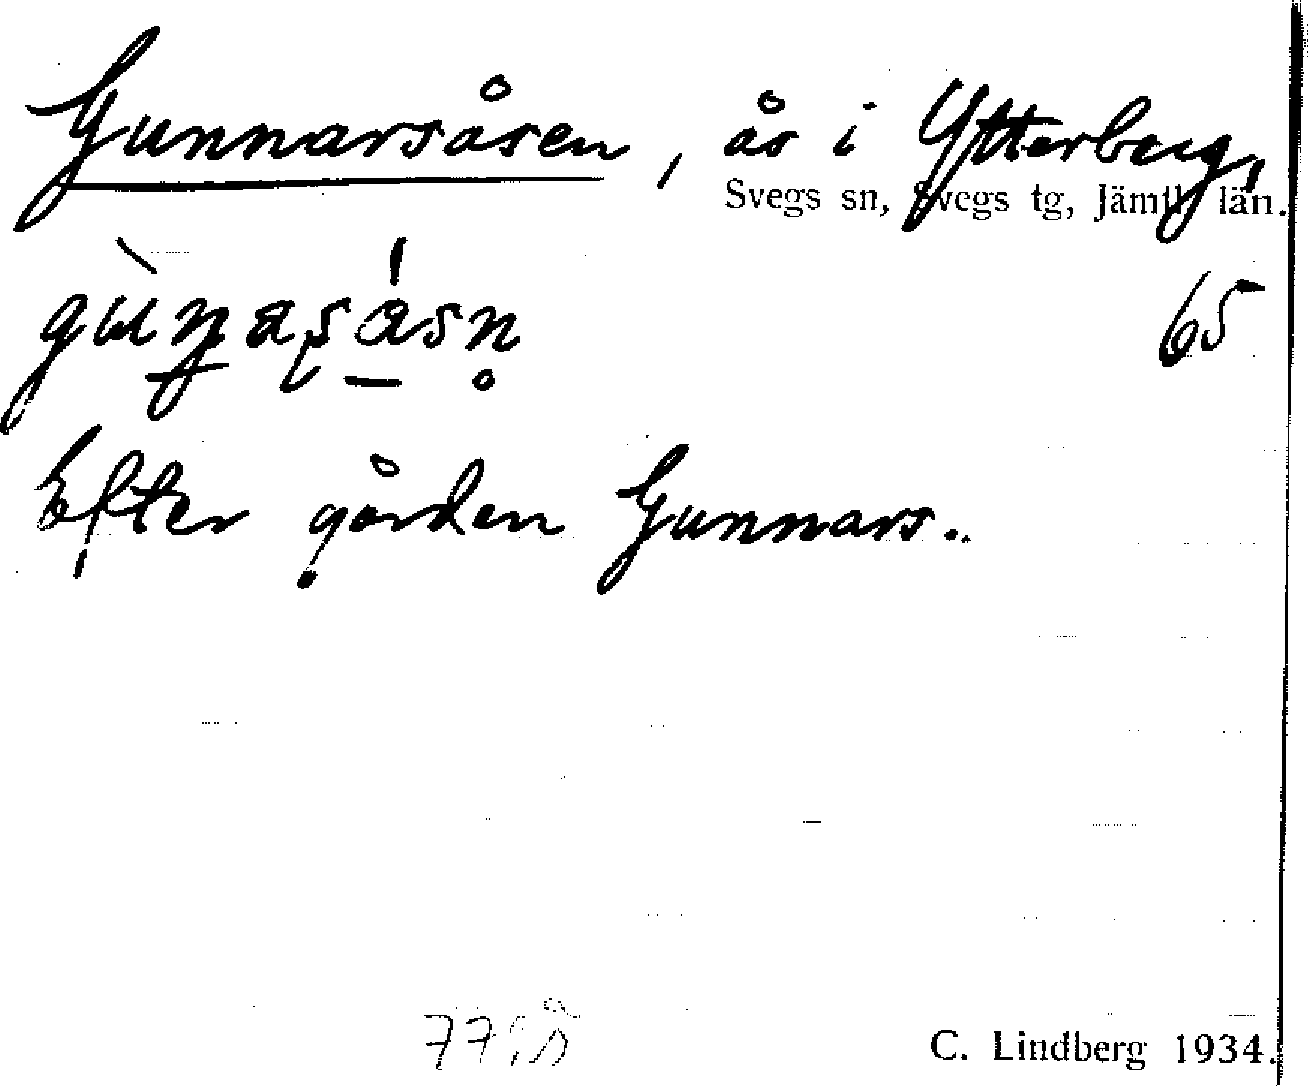 Gunnarsåsen, ås i Ytterberg,
Svegs sn, Svegs tg, Jämtl. län.
65
Efter gården Gunnars.
C. Lindberg 1934.